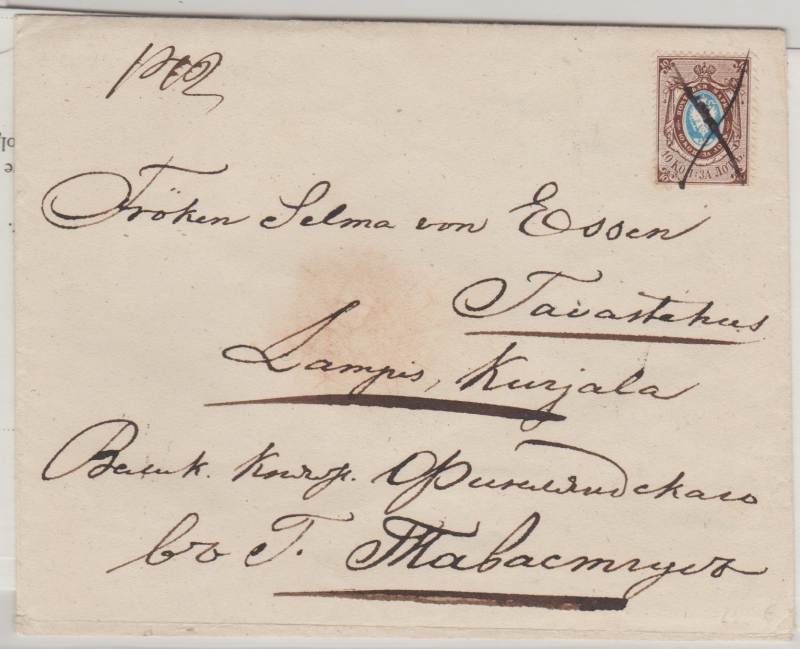 Fröken Selma von Essen
Tavastehus
Lampis, Kurjala
Велик. Княж. Финляндскаго
въ Г. Тавастгусъ
10 КОП. ЗА ЛОТЪ